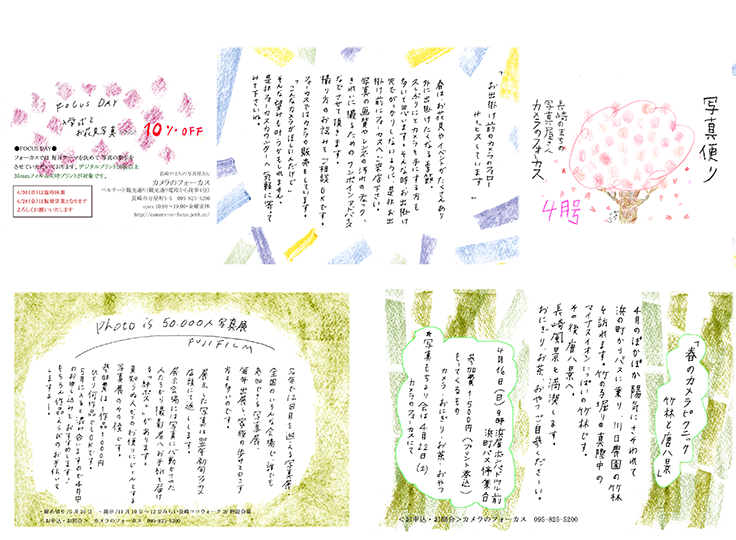 写真便り
長崎のまちの
写真屋さん
カメラのフォーカス
4月号
「お出掛け前のカメラのフォロー
サービスしています」
春はお花見やイベントがたくさんあり
外に出掛けたくなる季節。
久しぶりにカメラを手にする方も
フォーカスではカメラの販売もしています。
「こんなカメラがほしいんだけど」
是非フォーカスカウンターへお気軽に寄って
みて下さいね。
FOCUS DAY
入学式と
お花見写真
10% OFF
●FOCUS DAY●
フォーカスでは毎月テーマを決めて写真の割引を
させていただいております。デジタルプリント20枚以上
35mmフィルム同時プリントが対象です。
4/30(日)は臨時休業
4/28(金)は振替営業となります
よろしくお願いいたします
長崎のまちの写真屋さん
カメラのフォーカス
ベルナード観光通り(観光通り電停から徒歩4分)
長崎市万屋町5-5 095-825-5200
open.10:00~19:00・金曜定休
http://camera-no-focus.petit.cc/
「春のカメラピクニック
竹林と唐八景」
4月のぽかぽか陽気にさそわれて
浜の町からバスに乗り、川口農園の竹林
を訪れます。竹の子堀りの真最中の
マイナスイオンいっぱいの竹林です。
その後唐八景へ
長崎風景を満喫します。
おにぎり、お茶、おやつご自参くださーい。
4月16日(日)9時浜屋ボンパドゥル前
浜町バス停集合
参加費1500円(プリント券込)
もってくるもの
カメラ おにぎり お茶 おやつ
*写真もちより会は4月22日(土)
カメラのフォーカスにて
<お申込・お問合>カメラのフォーカス 095-825-5200
photo is 50.000人写真展
FUJIFILM
今年で12回目を迎える写真展。
全国のいろんな会場で、誰でも
参加できる写真展。
毎年出展し、家族の歩みをのこす
方も多いのです。
展示した写真は翌年初旬フォーカス
店頭にて返却します。
展示会場には写真に感動されたの
人たちから撮影者へお手紙を届け
る"絆ポスト"があります。
見知らぬ人からのお便りにじーんとする
写真展のその後です。
参加費は1作品1000円
ひとり何作品でもOKです。
もちろん作品えらびのお手伝いも
しますよー!
・締め切り/5月20日 ・展示/11月10日~12日みらい長崎ココウォーク2F特設会場
<お申込・お問合> カメラのフォーカス 095-825-5200